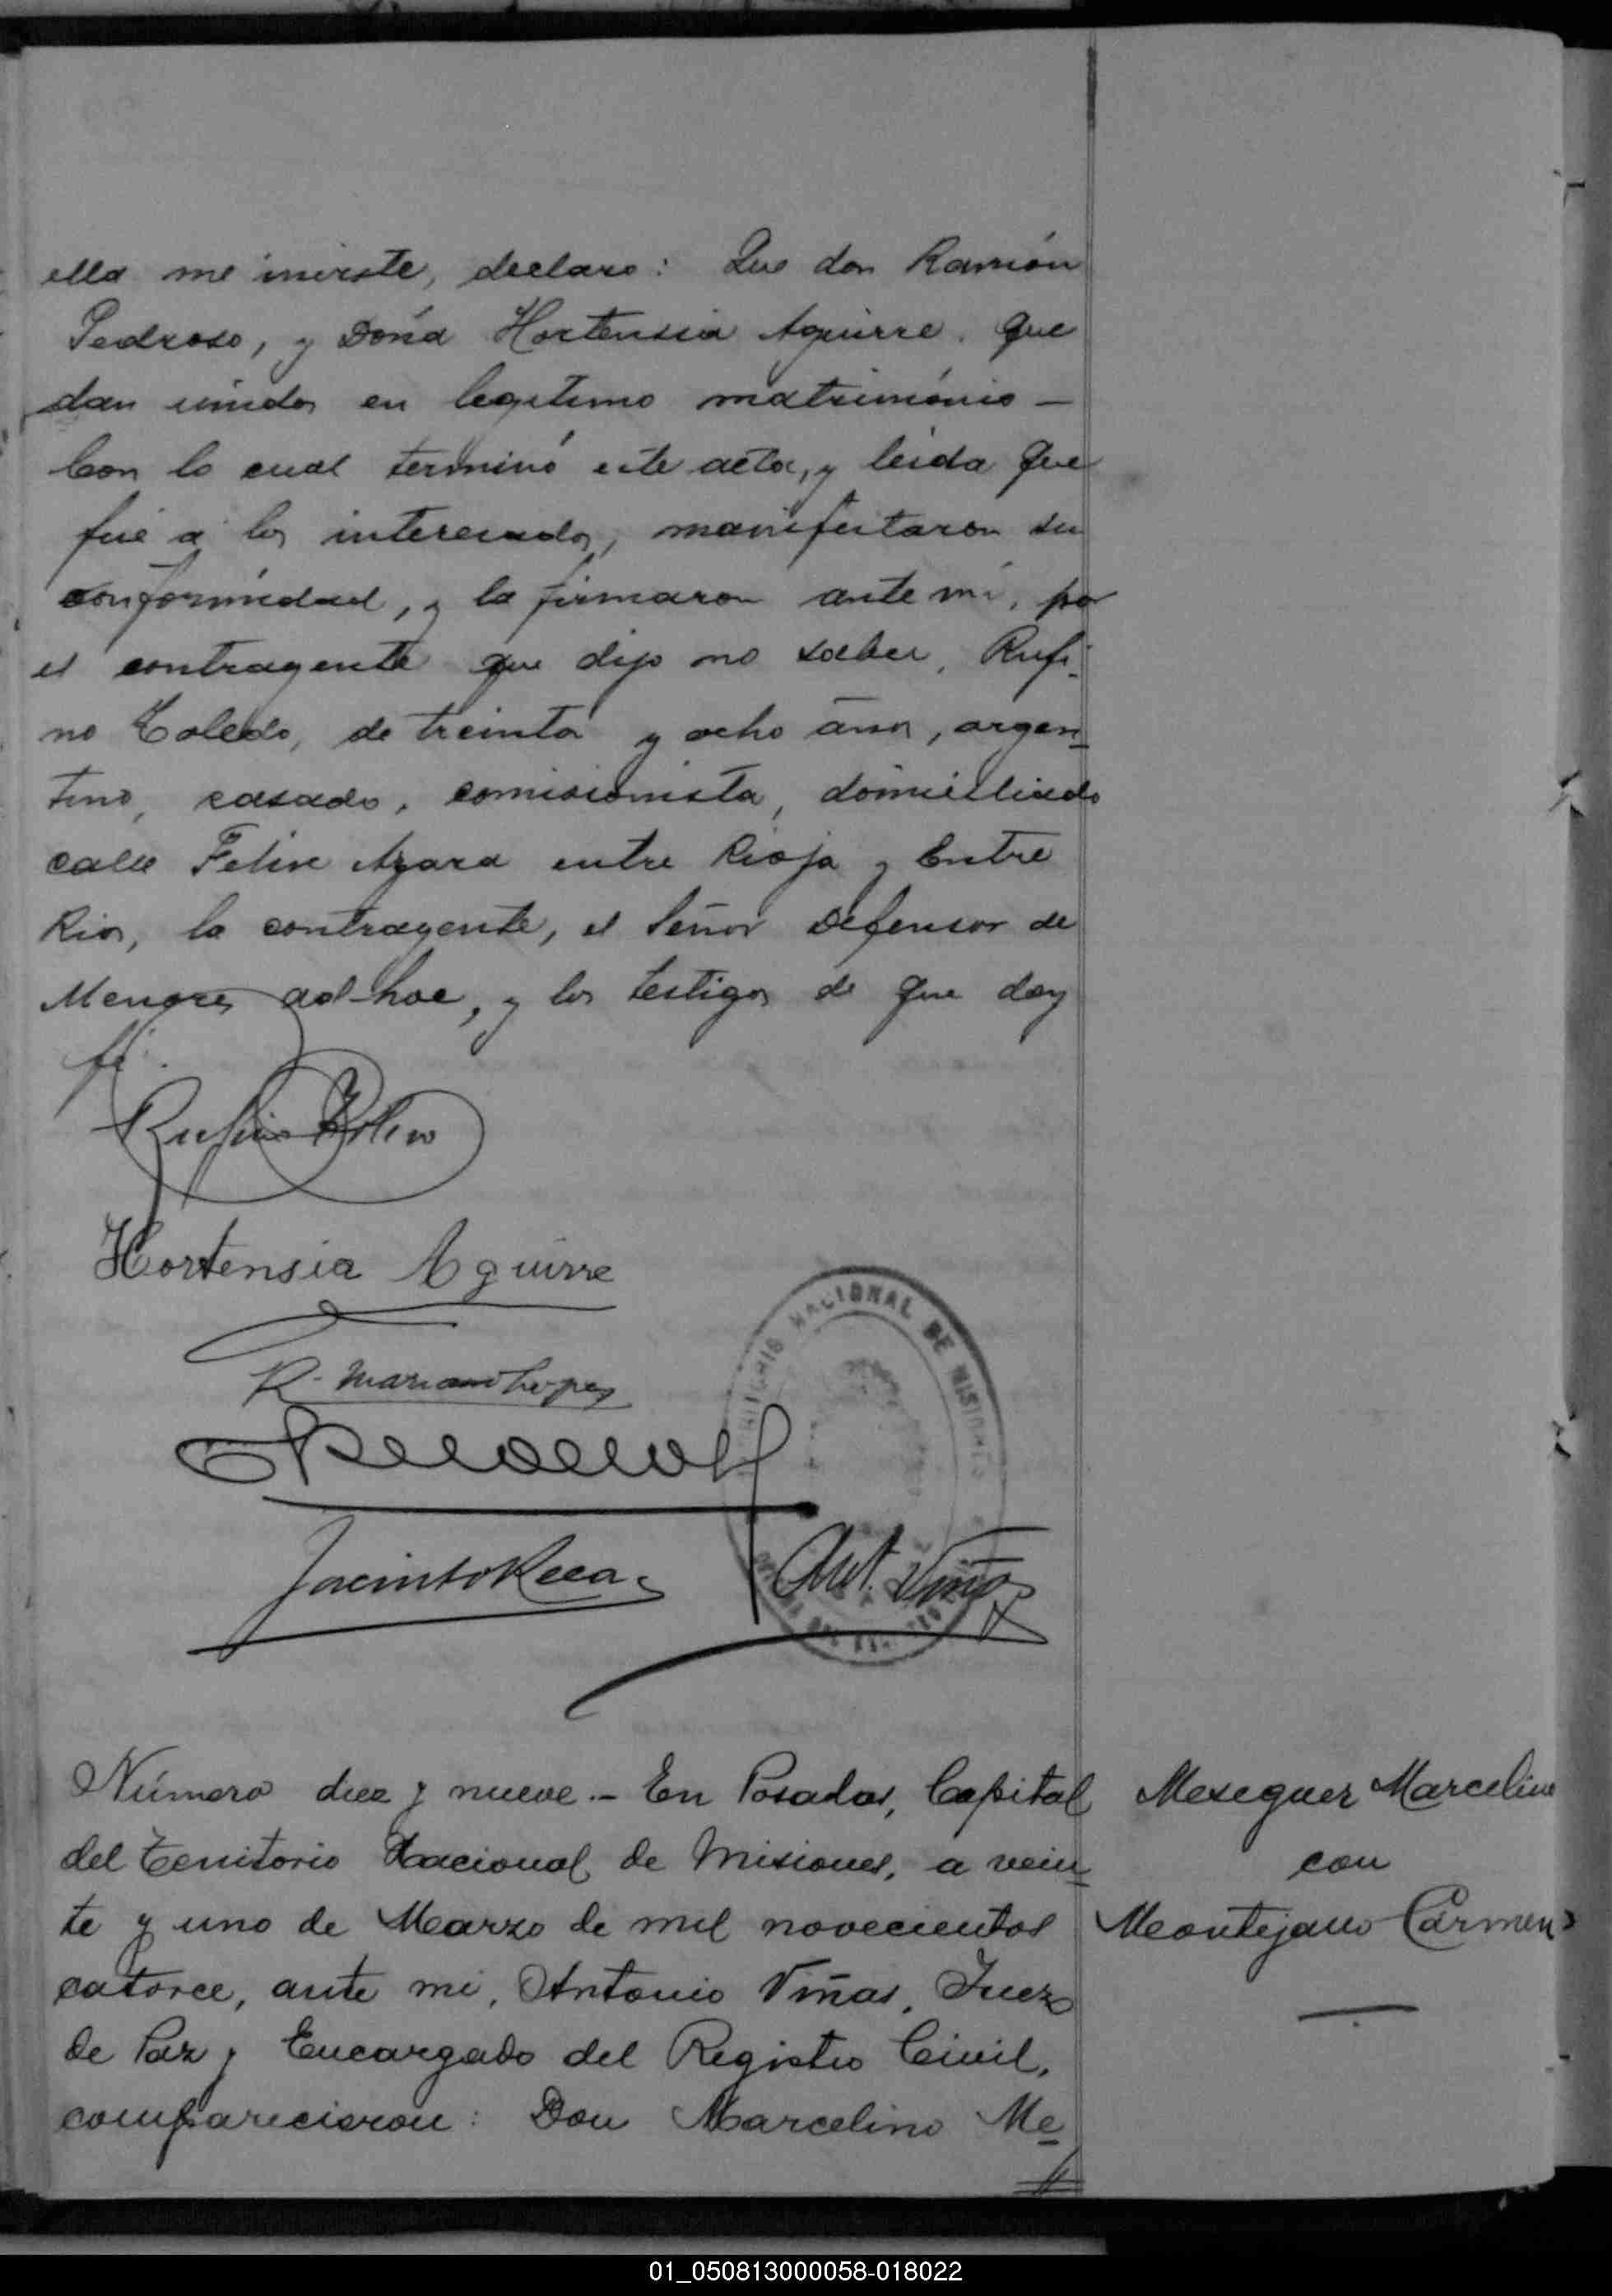 ella me inviste, declaro: Que don Ramón
Pedroso, y Doña Hortensia Aguirre, que
dan unidos en legitimo matrimónio —
Con lo cual terminó este acta, y leida que
fué a los interesados, manifestaron su
conformidad, y la firmaron ante mí, por
el contragente que dijo no saber, Rufi-
no Toledo, de treinta y ocho años, argen-
tino, casado, comisionista, domiciliado
calle Felix Azara entre Rioja y Entre
Rios, la contragente, el Señor Defensor de
Menores ad-hoc, y los testigos de que doy
fé.
Rufino Toledo
Hortensia Aguirre
R. Mariano Lopez
Jacinto Reca
Ant. Viñas
NACIONAL DE MISIONES
Número diez y nueve.- En Posadas, Capital
del Territorio Nacional de Misiones, a vein-
te y uno de Marzo de mil novecientos
catorce, ante mi, Antonio Viñas, Juez
de Paz y Encargado del Registro Civil,
comparecieron: Don Marcelino Me-
Meseguer Marcelino
con
Montejano Carmen
01_050813000058-018022